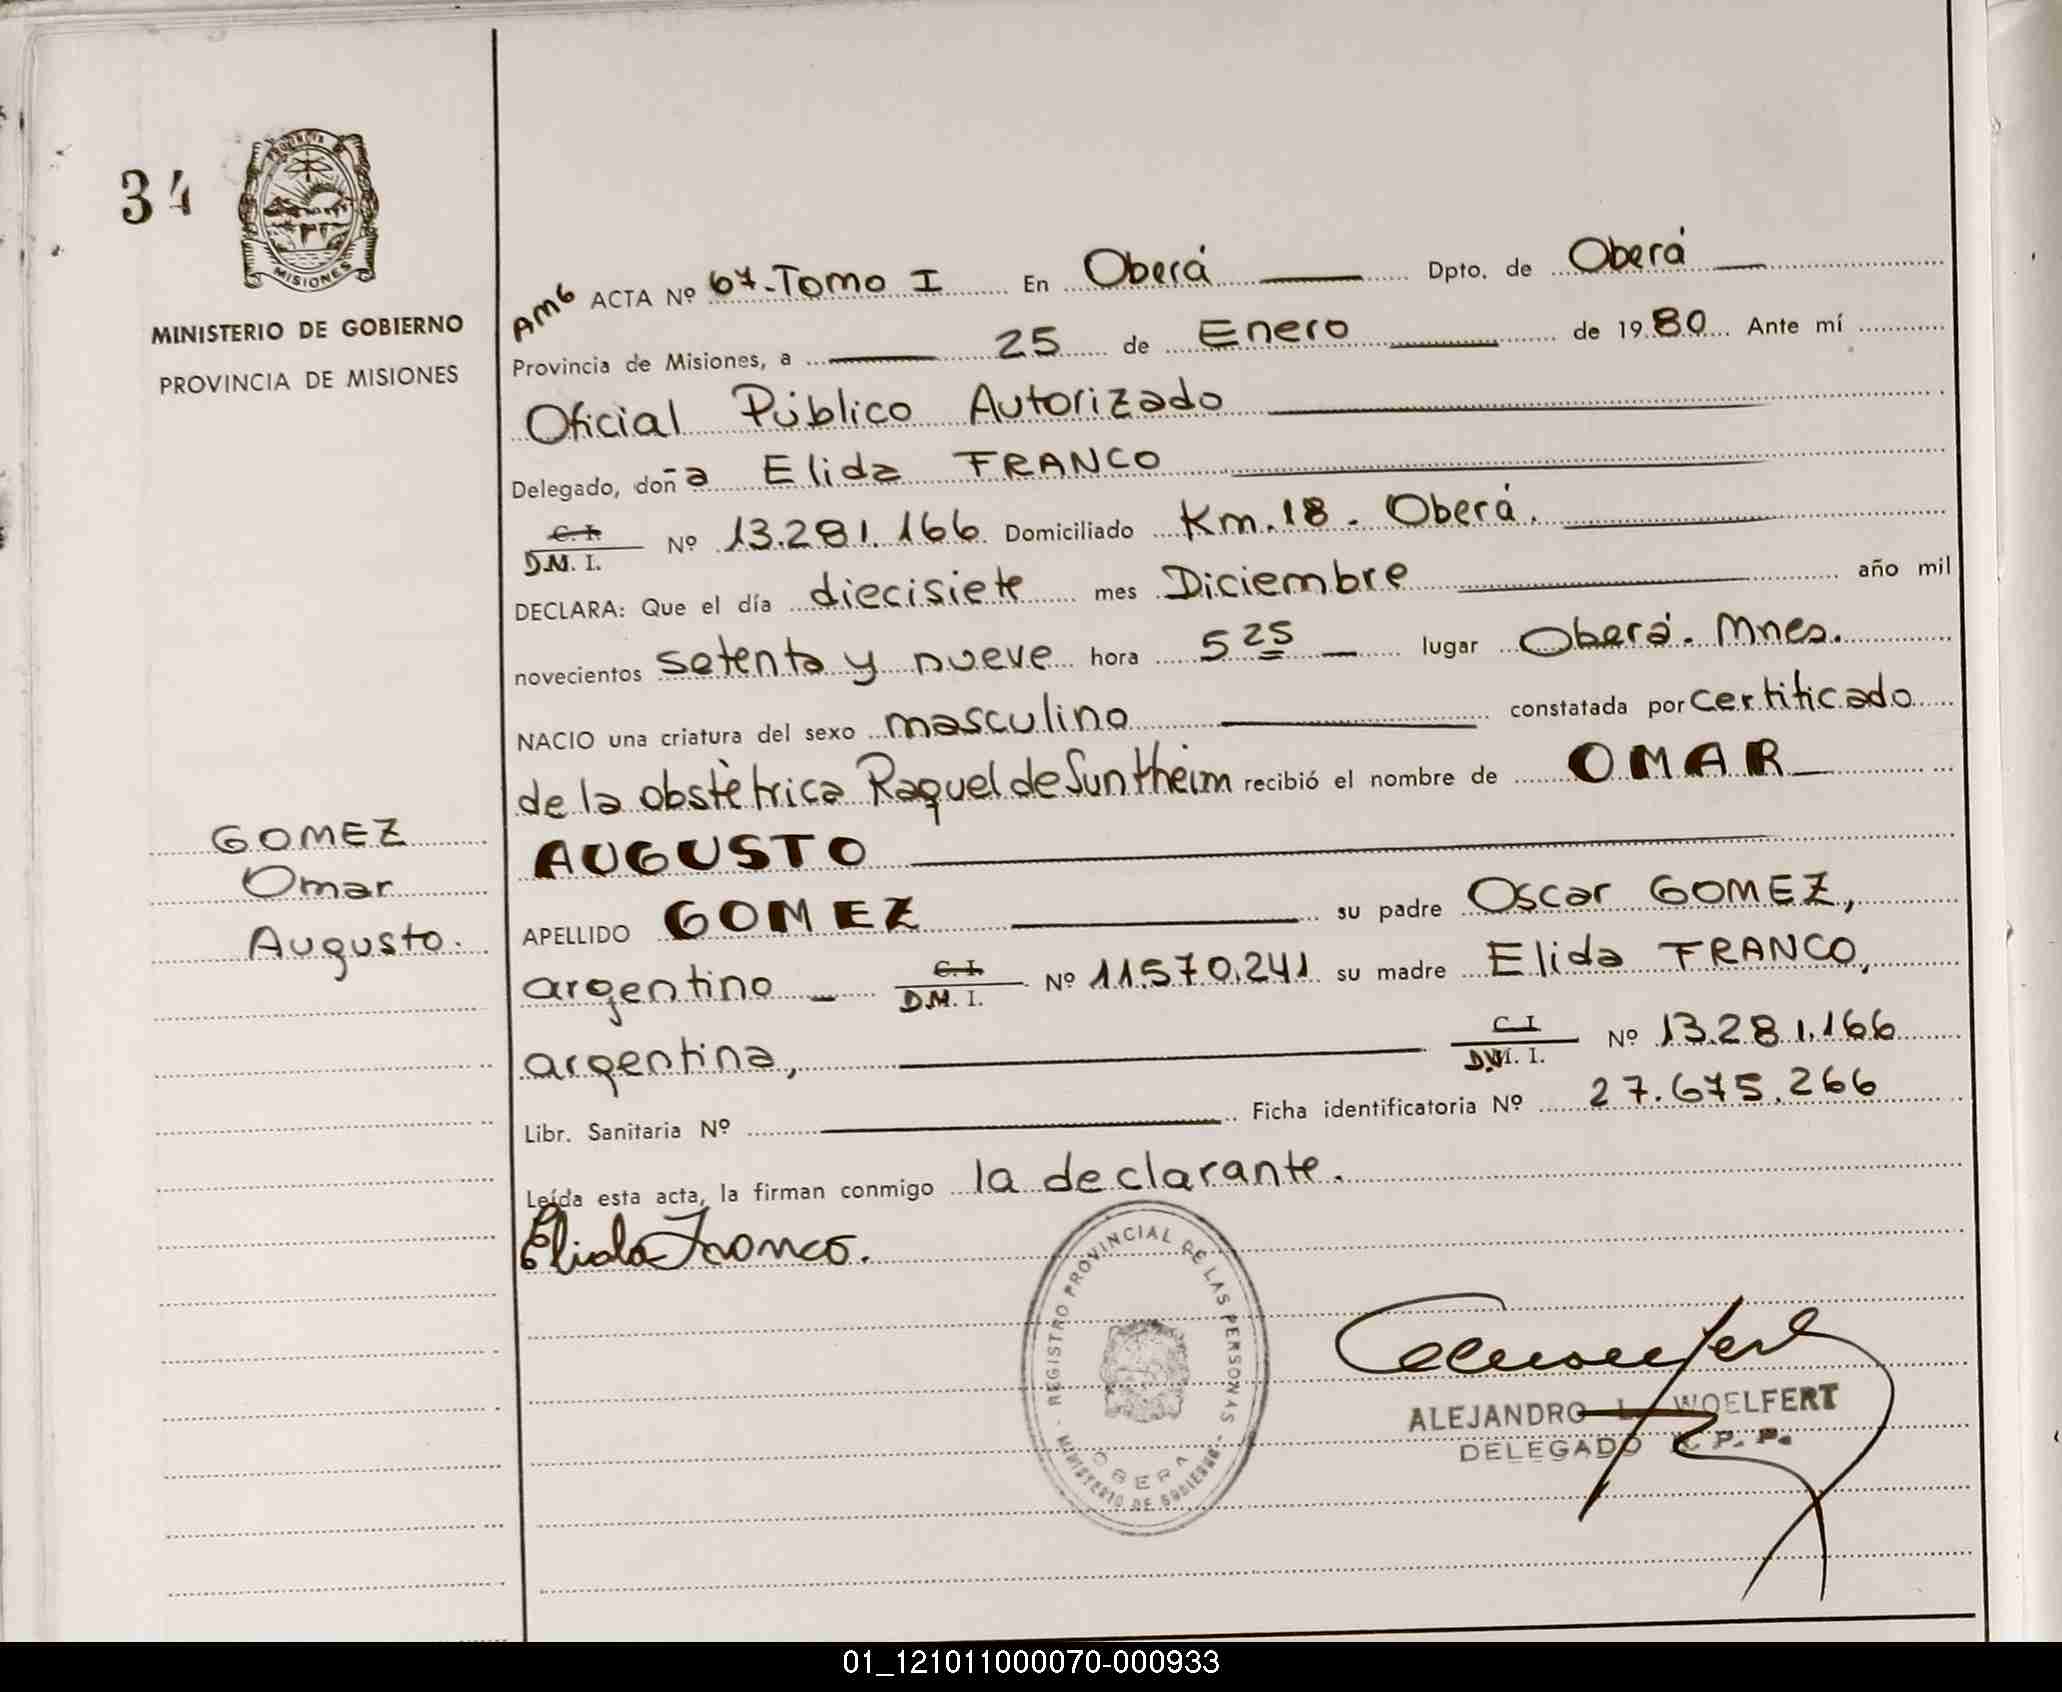 34
PROVINCIA
MISIONES
MINISTERIO DE GOBIERNO
PROVINCIA DE MISIONES
GOMEZ
Omar
Augusto.
AMG ACTA Nº 67-Tomo I En Oberá Dpto. de Oberá
Provincia de Misiones, a 25 de Enero de 1980 Ante mí
Oficial Público Autorizado
Delegado, doña Elida FRANCO
C. I. D.N. I. Nº 13.281.166 Domiciliado Km.18 - Oberá.
DECLARA: Que el día diecisiete mes Diciembre año mil
novecientos setenta y nueve hora 5 25 lugar Oberá. Mnes.
NACIO una criatura del sexo masculino constatada por certificado
de la obstètrica Raquel de Suntheim recibió el nombre de OMAR
AUGUSTO
APELLIDO GOMEZ su padre Oscar GOMEZ,
argentino C.I. D.N. I. Nº 11.570.241 su madre Elida FRANCO,
argentina, C I D.N. I. Nº 13.281.166
Libr. Sanitaria Nº Ficha identificatoria Nº 27.675.266
Leída esta acta, la firman conmigo la declarante.
Elida Franco.
REGISTRO PROVINCIAL DE LAS PERSONAS
MINISTERIO DE GOBIERNO
OBERA
ALEJANDRO L. WOELFERT
DELEGADO R. P. P.
01_121011000070-000933